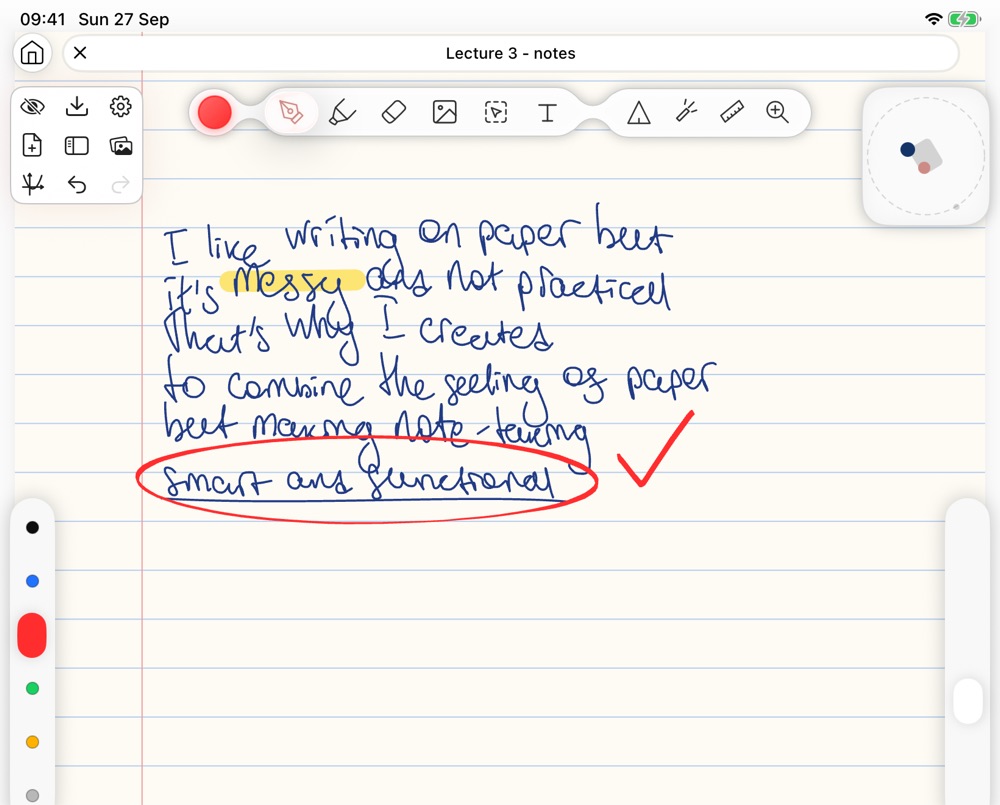 09:41 Sun 27 Sep
Lecture 3 - notes
T
I like writing on paper but
it's messy and not practical
That's why I created
to combine the feeling of paper
but making note-taking
smart and functional